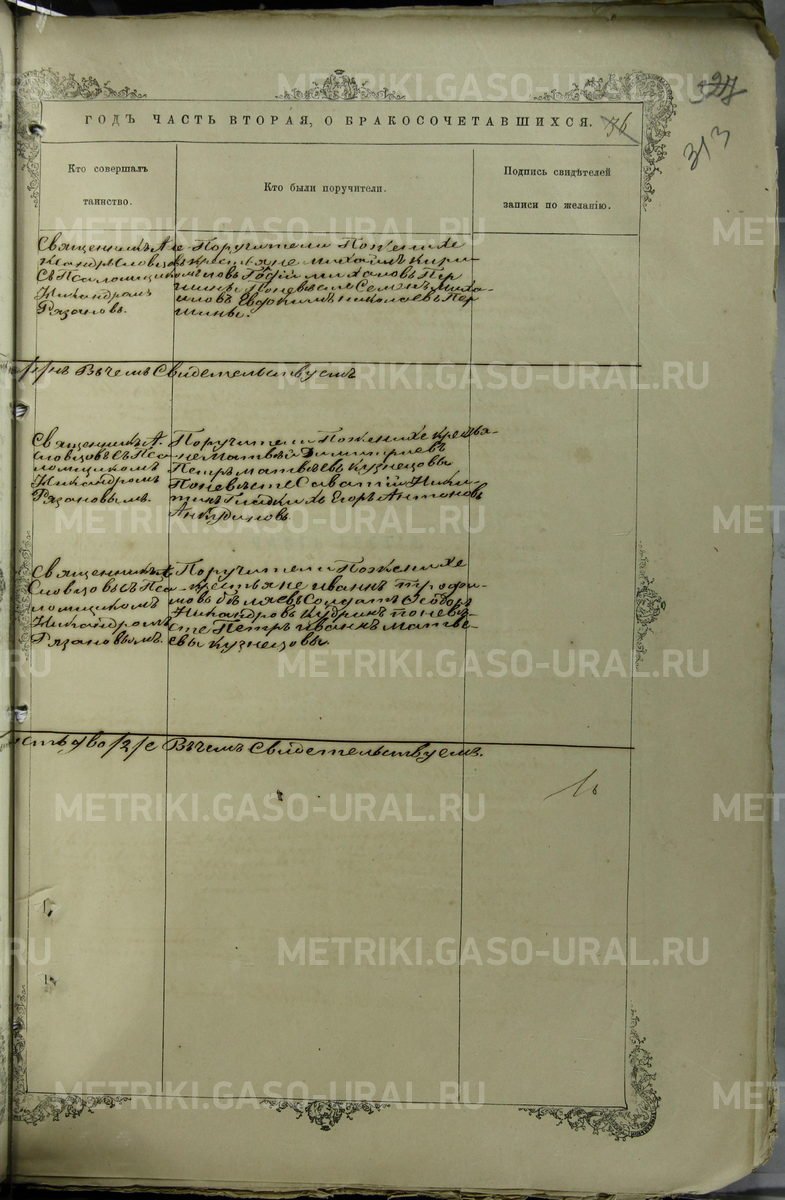 ГОДЪ ЧАСТЬ ВТОРАЯ, О БРАКОСОЧЕТАВШИХСЯ. 36
313
Кто совершалъ
таинство.
Кто были поручители.
Подпись свидѣтелей
записи по желанію.
Священникъ Але
ксандръ Словцовъ
съ Псаломщикомъ
Никандромъ
Рязановъ.
Поручители Поженихе
крестьяне Михаилъ Кири-
ловъ
Михаловъ Пер
шины Поневѣсте Семенъ Миха-
иловъ Евфкимъ Николаевъ Пер
шины.
Въ чемъ Свидетельствуемъ
Священникъ А.
Словцовъ съ Пса
ломщикомъ
Никандромъ
Рязановымъ.
Поручители Поженихе крестья-
не Матвѣй Димитриевъ
Петръ Матвѣевъ Кузнецовы
Поневѣсте Саватій Ники-
тинъ Гладких Егоръ Антоновъ
Анкудиновъ.
Священникъ А
Словцовъ съ Пса
ломщикомъ
Никандромъ
Рязановымъ.
Поручители Поженихе
крестьяне Иванъ Трофи-
мовъ Бѣляевъ Солдатъ Ѳеодоръ
Никандровъ Кудринъ поневѣ-
сте Петръ Иванъ Матве-
евы Кузнецовы.
Въ чемъ Свидетельствуемъ.
METRIKI.GASO-URAL.RU